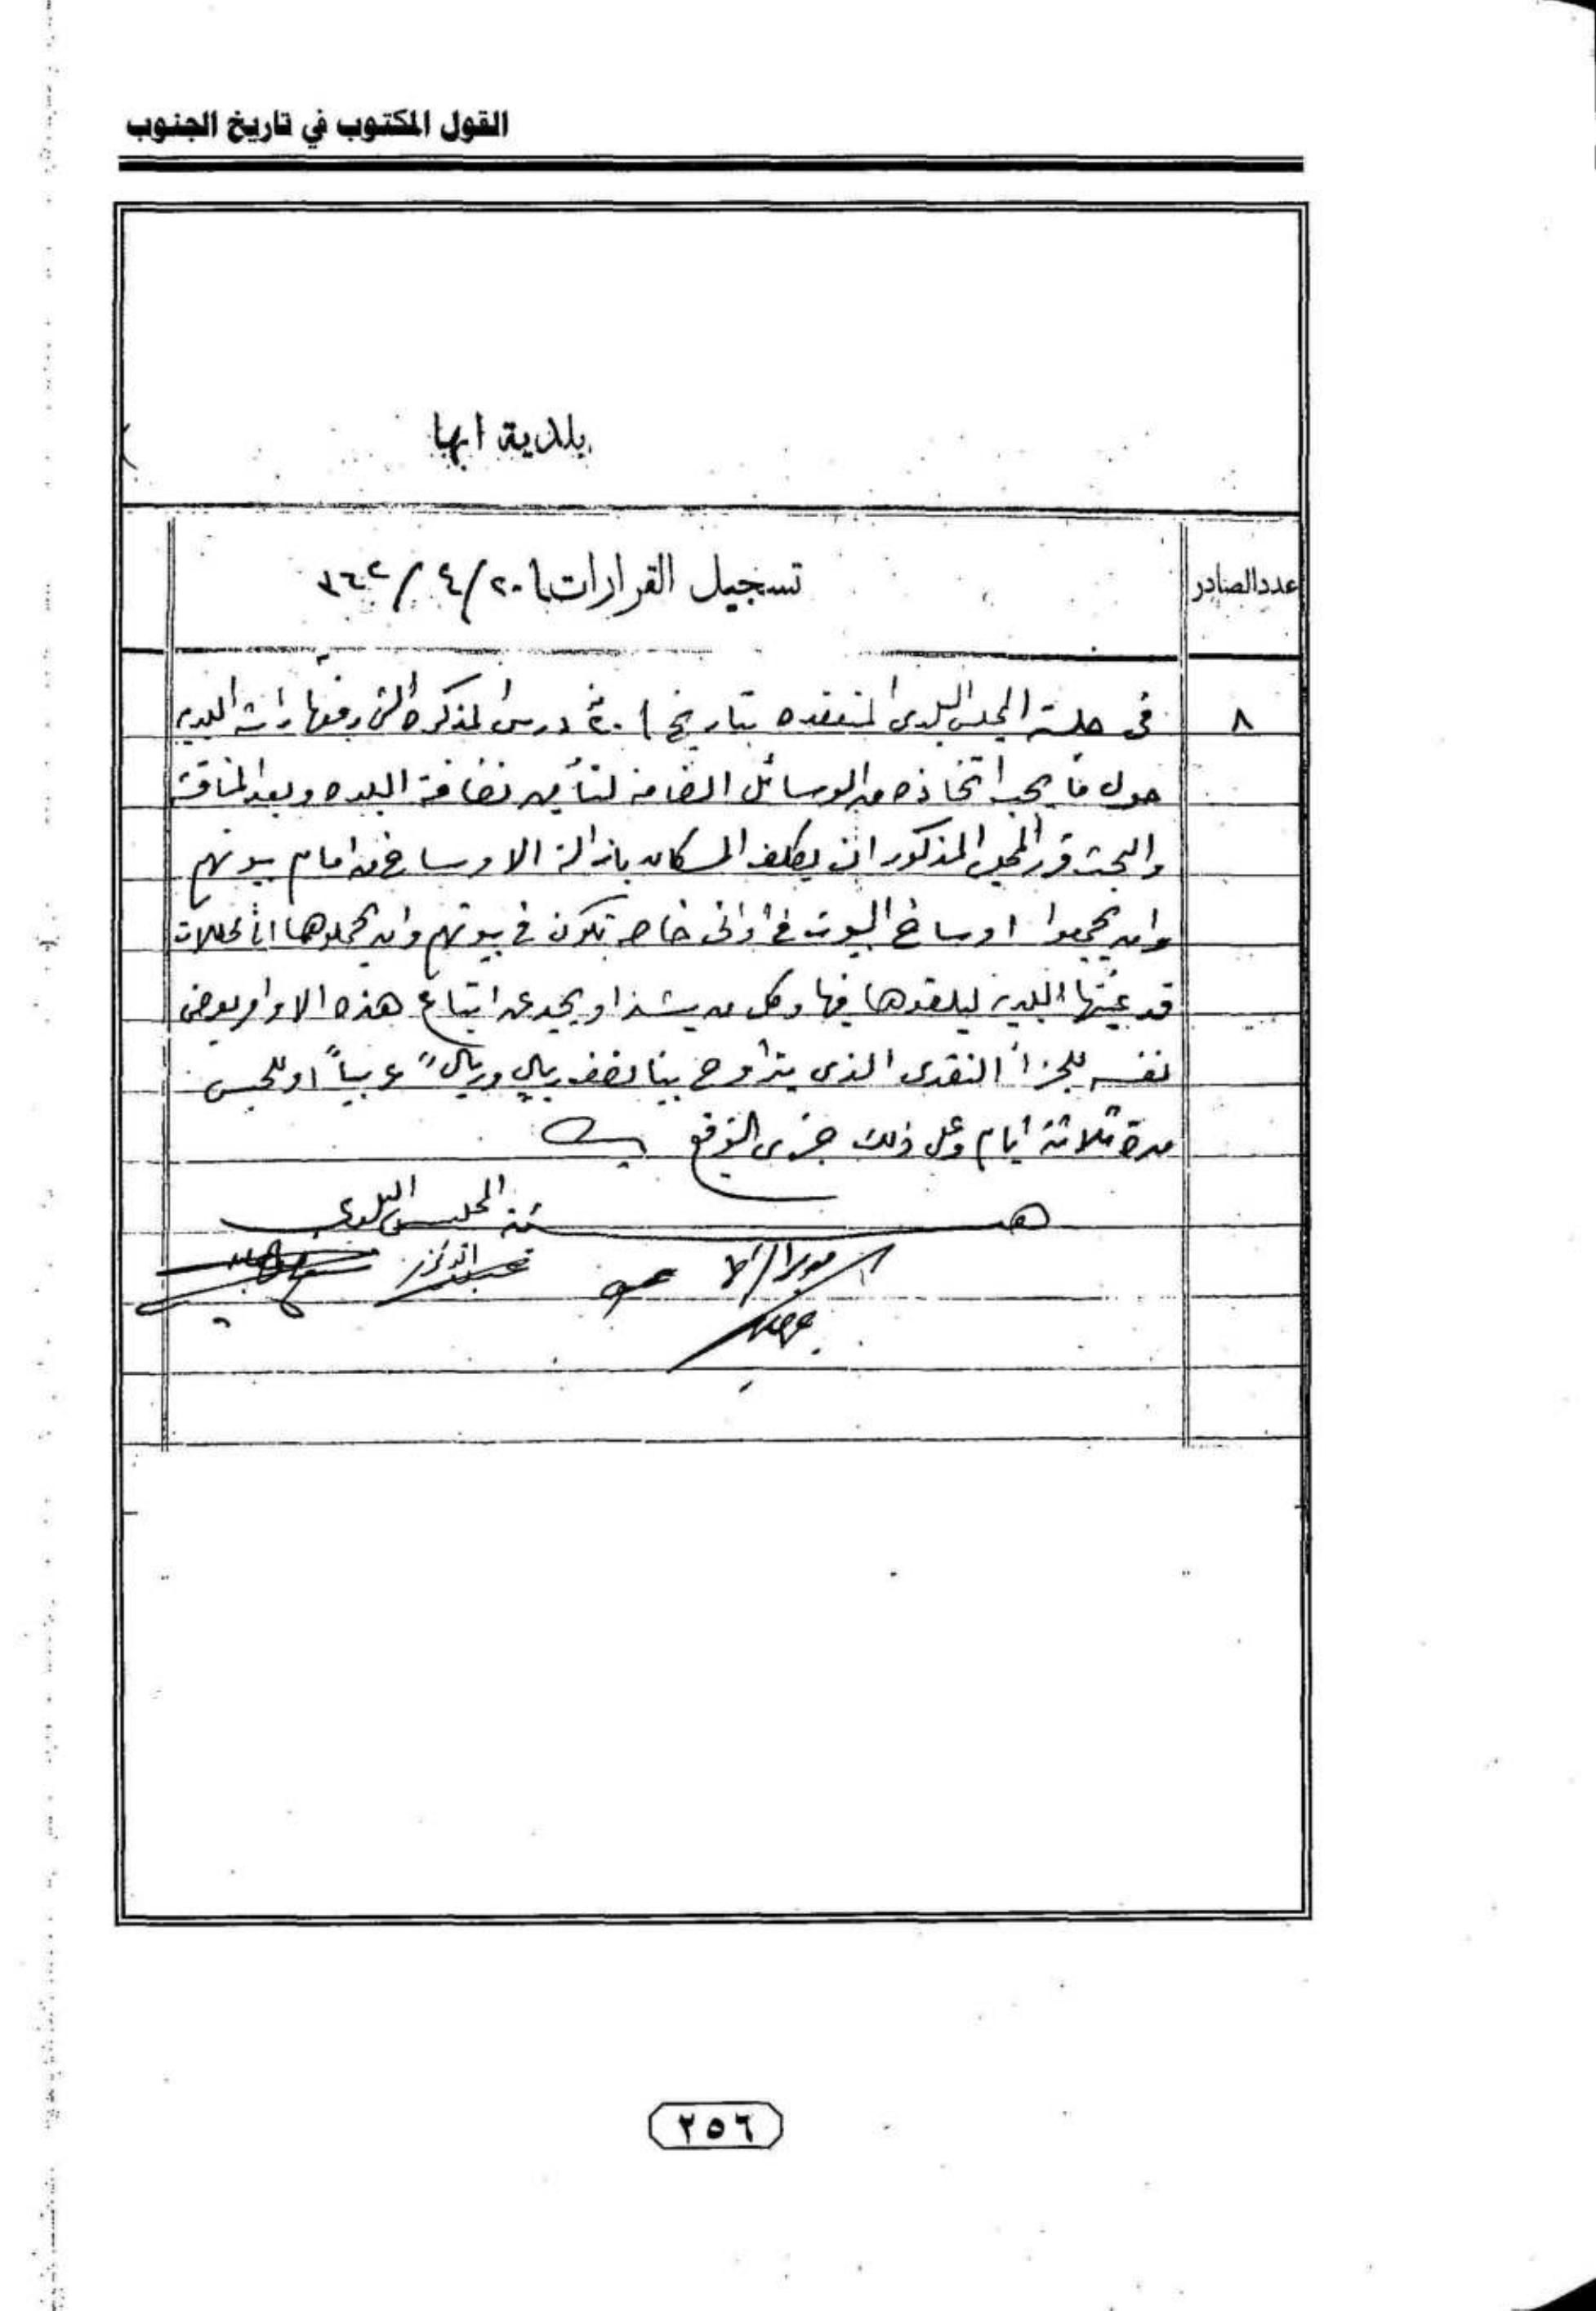 القول المكتوب في تاريخ الجنوب
بلدية ابها
عدد الصادر
تسجيل القرارات ٢٠/٤/٣٦٢
٨
في جلسة المجلس البلدي المنعقده بتاريخ درس المذكره التي رفعها رآسة البلديه
حول ما يجب اتخاذه من الوسائل الضامنه لتأمين نضافة البلده وبعد المناقشة
والبحث قرر المجلس المذكور ان يكلف السكان بازالة الاوساخ من امام بيوتهم
وان يجمعوا اوساخ البيوت في أواني خاصه تكون في بيوتهم وان يحملوها الى محلات
قد عينتها البلديه ليلقوها فيها وكل من يشذ او يحيد عن اتباع هذه الاوامر يعرض
نفسه للجزأ النقدي الذي يتراوح بين نصف ريال وريال عربياً او للحبس
مدة ثلاثة ايام وعلى ذلك جرى التوقيع
هيئة المجلس البلدي